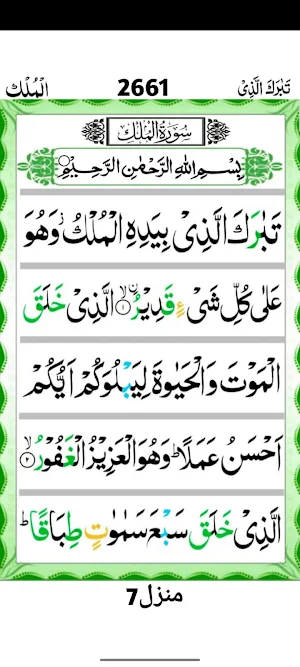 الْمُلْك 2661 تَبٰرَكَ الَّذِىْ
سُوْرَةُ الْمُلْكِ
بِسْمِ اللّٰهِ الرَّحْمٰنِ الرَّحِيْمِ
تَبٰرَكَ الَّذِىْ بِيَدِهِ الْمُلْكُ ز وَهُوَ
عَلٰى كُلِّ شَىْءٍ قَدِيْرُ ۙ‏﴿۱﴾ اۨلَّذِىْ خَلَقَ
الْمَوْتَ وَالْحَيٰوةَ لِيَبْلُوَكُمْ اَيُّكُمْ
اَحْسَنُ عَمَلًا ؕ وَهُوَ الْعَزِيْزُ الْغَفُوْرُ ۙ‏﴿۲﴾
الَّذِىْ خَلَقَ سَبْعَ سَمٰوٰتٍ طِبَاقًا ؕ
منزل7